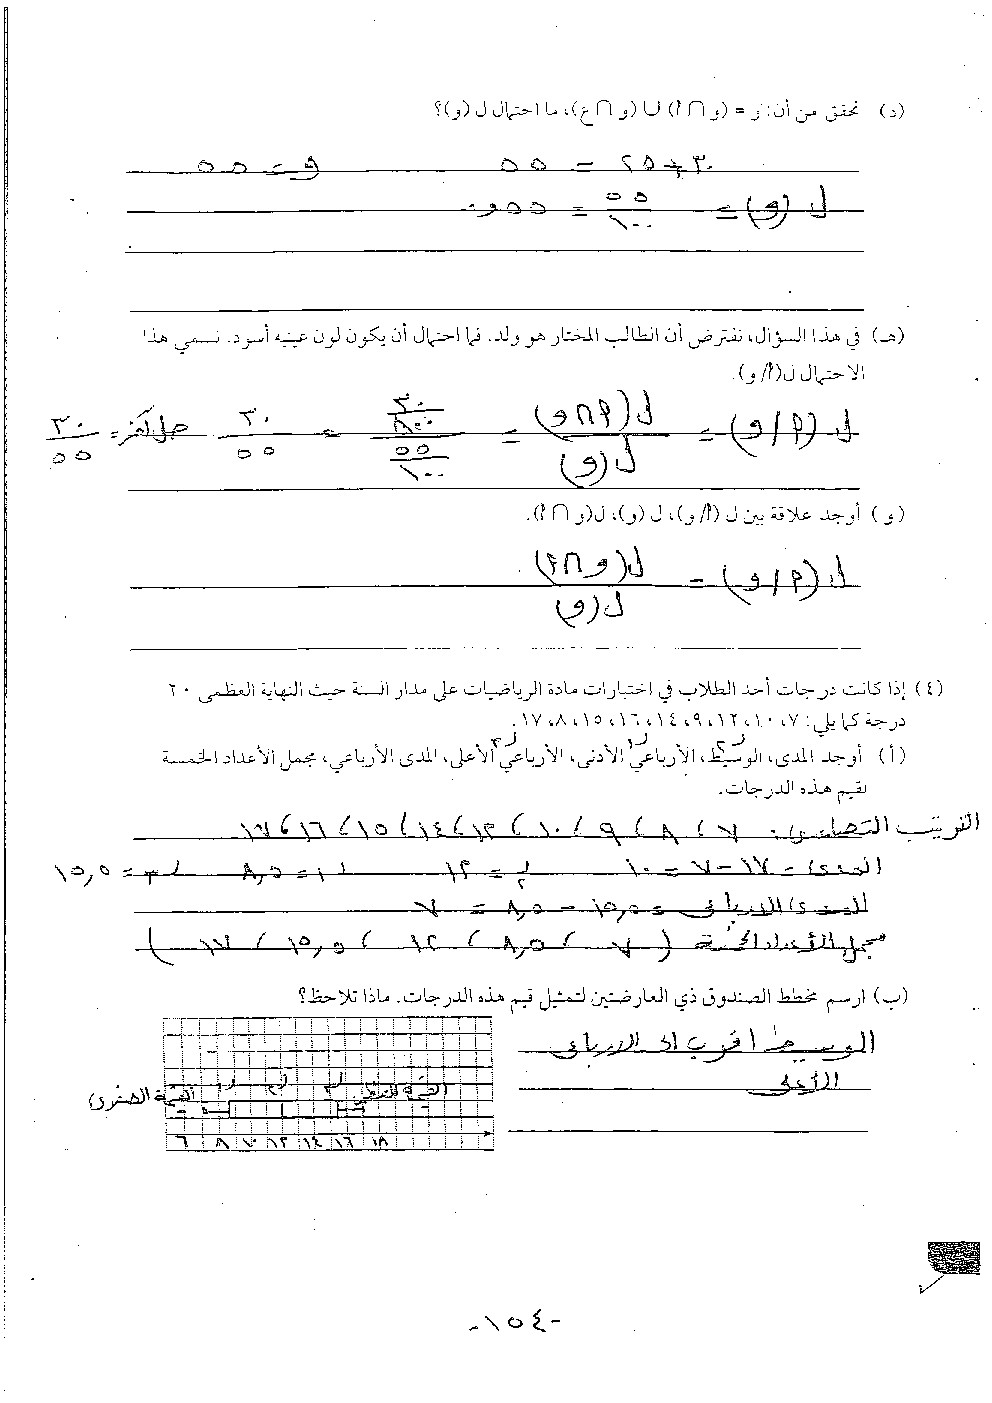 (د) تحقق من أن: و = (و ∩ أ) ∪ (و ∩ ع)، ما احتمال ل (و)؟
٣٠ + ٢٥ = ٥٥ و = ٥٥
ل (و) = ٥٥/١٠٠ = ٠٫٥٥
(هـ) في هذا السؤال، نفترض أن الطالب المختار هو ولد. فما احتمال أن يكون لون عينيه أسود. نسمي هذا
الاحتمال ل(أ/و).
ل (أ/و) = ل(أ ∩ و)/ل(و) = ٣٠/١٠٠ / ٥٥/١٠٠ = ٣٠/٥٥ حل آخر = ٣٠/٥٥
(و) أوجد علاقة بين ل (أ/و)، ل (و)، ل(و ∩ أ).
ل (أ/و) = ل(و ∩ أ)/ل(و)
(٤) إذا كانت درجات أحد الطلاب في اختبارات مادة الرياضيات على مدار السنة حيث النهاية العظمى ٢٠
درجة كما يلي: ٧، ١٠، ١٢، ٩، ١٤، ١٦، ١٥، ٨، ١٧.
(أ) أوجد المدى، الوسيط، الأرباعي الأدنى، الأرباعي الأعلى، المدى الأرباعي، مجمل الأعداد الخمسة
لقيم هذه الدرجات.
ر٢ ر١ ر٣
الترتيب التصاعدي: ٧، ٨، ٩، ١٠، ١٢، ١٤، ١٥، ١٦، ١٧
المدى = ١٧ - ٧ = ١٠ ر٢ = ١٢ ر١ = ٨,٥ ر٣ = ١٥,٥
المدى الارباعي = ١٥,٥ - ٨,٥ = ٧
مجمل الأعداد الخمسة ( ٧ ، ٨,٥ ، ١٢ ، ١٥,٥ ، ١٧ )
(ب) ارسم مخطط الصندوق ذي العارضتين لتمثيل قيم هذه الدرجات. ماذا تلاحظ؟
الوسيط اقرب الى الارباعي
الأعلى
القيمة الصغرى ر١ ر٢ ر٣ القيمة العظمى
٦ ٨ ١٠ ١٢ ١٤ ١٦ ١٨
-١٥٤-